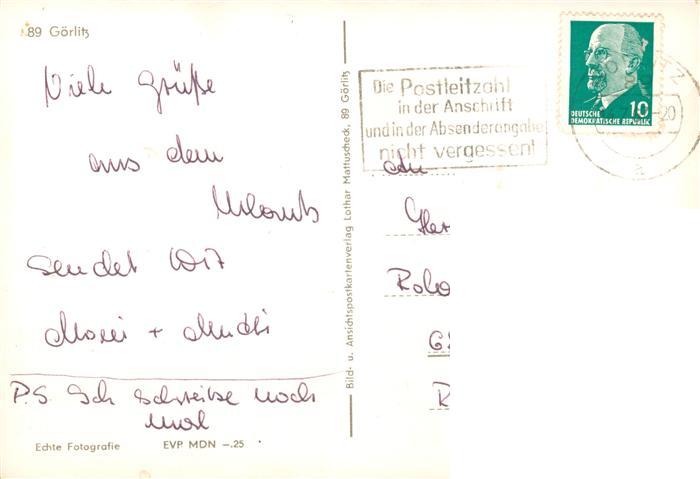 89 Görlitz
Viele Grüße
aus dem
Urlaub
sendet
+
P.S. Ich schreibe noch
mal
Echte Fotografie EVP MDN –.25
Bild- u. Ansichtspostkartenverlag Lothar Mattuscheck, 89 Görlitz
Die Postleitzahl
in der Anschrift
und in der Absenderangabe
nicht vergessen!
DEUTSCHE
DEMOKRATISCHE REPUBLIK
10
-20
a
An